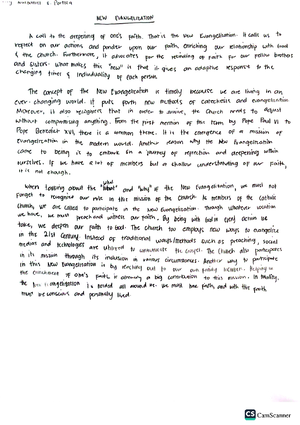 NEW EVANGELIZATION
A call to the deepening of one's faith. That is the New Evangelization. It calls us to
reflect on our actions and ponder upon our faith, enriching our relationship with God
& the Church. Furthermore, it advocates for the reliving of faith for our fellow brothers
and sisters. What makes this "new" is that it gives an adaptive response to the
changing times & individuality of each person.
The concept of the New Evangelization is timely because we are living in an
ever-changing world. It puts forth new methods of catechesis and evangelization.
Moreover, it also recognizes that in order to evolve, the Church needs to adjust
without compromising anything. From the first mention of the term by Pope Paul VI to
Pope Benedict XVI, there is a common theme. It is the emergence of a mission of
evangelization in the modern world. Another reason why the New Evangelization
came to being is to embark on a journey of repentance and deepening within
ourselves. If we have a lot of members but a shallow understanding of our faith,
it is not enough.
When talking about the "what" and "why" of the New Evangelization, we must not
forget to recognize our role in this mission of the Church. As members of the Catholic
Church, we are called to participate in the New Evangelization. Through whatever vocation
we have, we must preach and witness our faith. By being with God in every action we
take, we deepen our faith to God. The Church too employs new ways to evangelize
in the 21st century. Instead of traditional ways/methods such as preaching, social
medias and technologies are utilized to the gospel. The Church also participates
in its mission through its inclusion in various circumstances. Another way to participate
in this New Evangelization is by reaching out to our own
the enrichment of one's faith is already a big contribution to this mission. In reality,
the evangelization is needed all around us. We must have faith, and with the faith
must be conscious and personally lived.
CS CamScanner